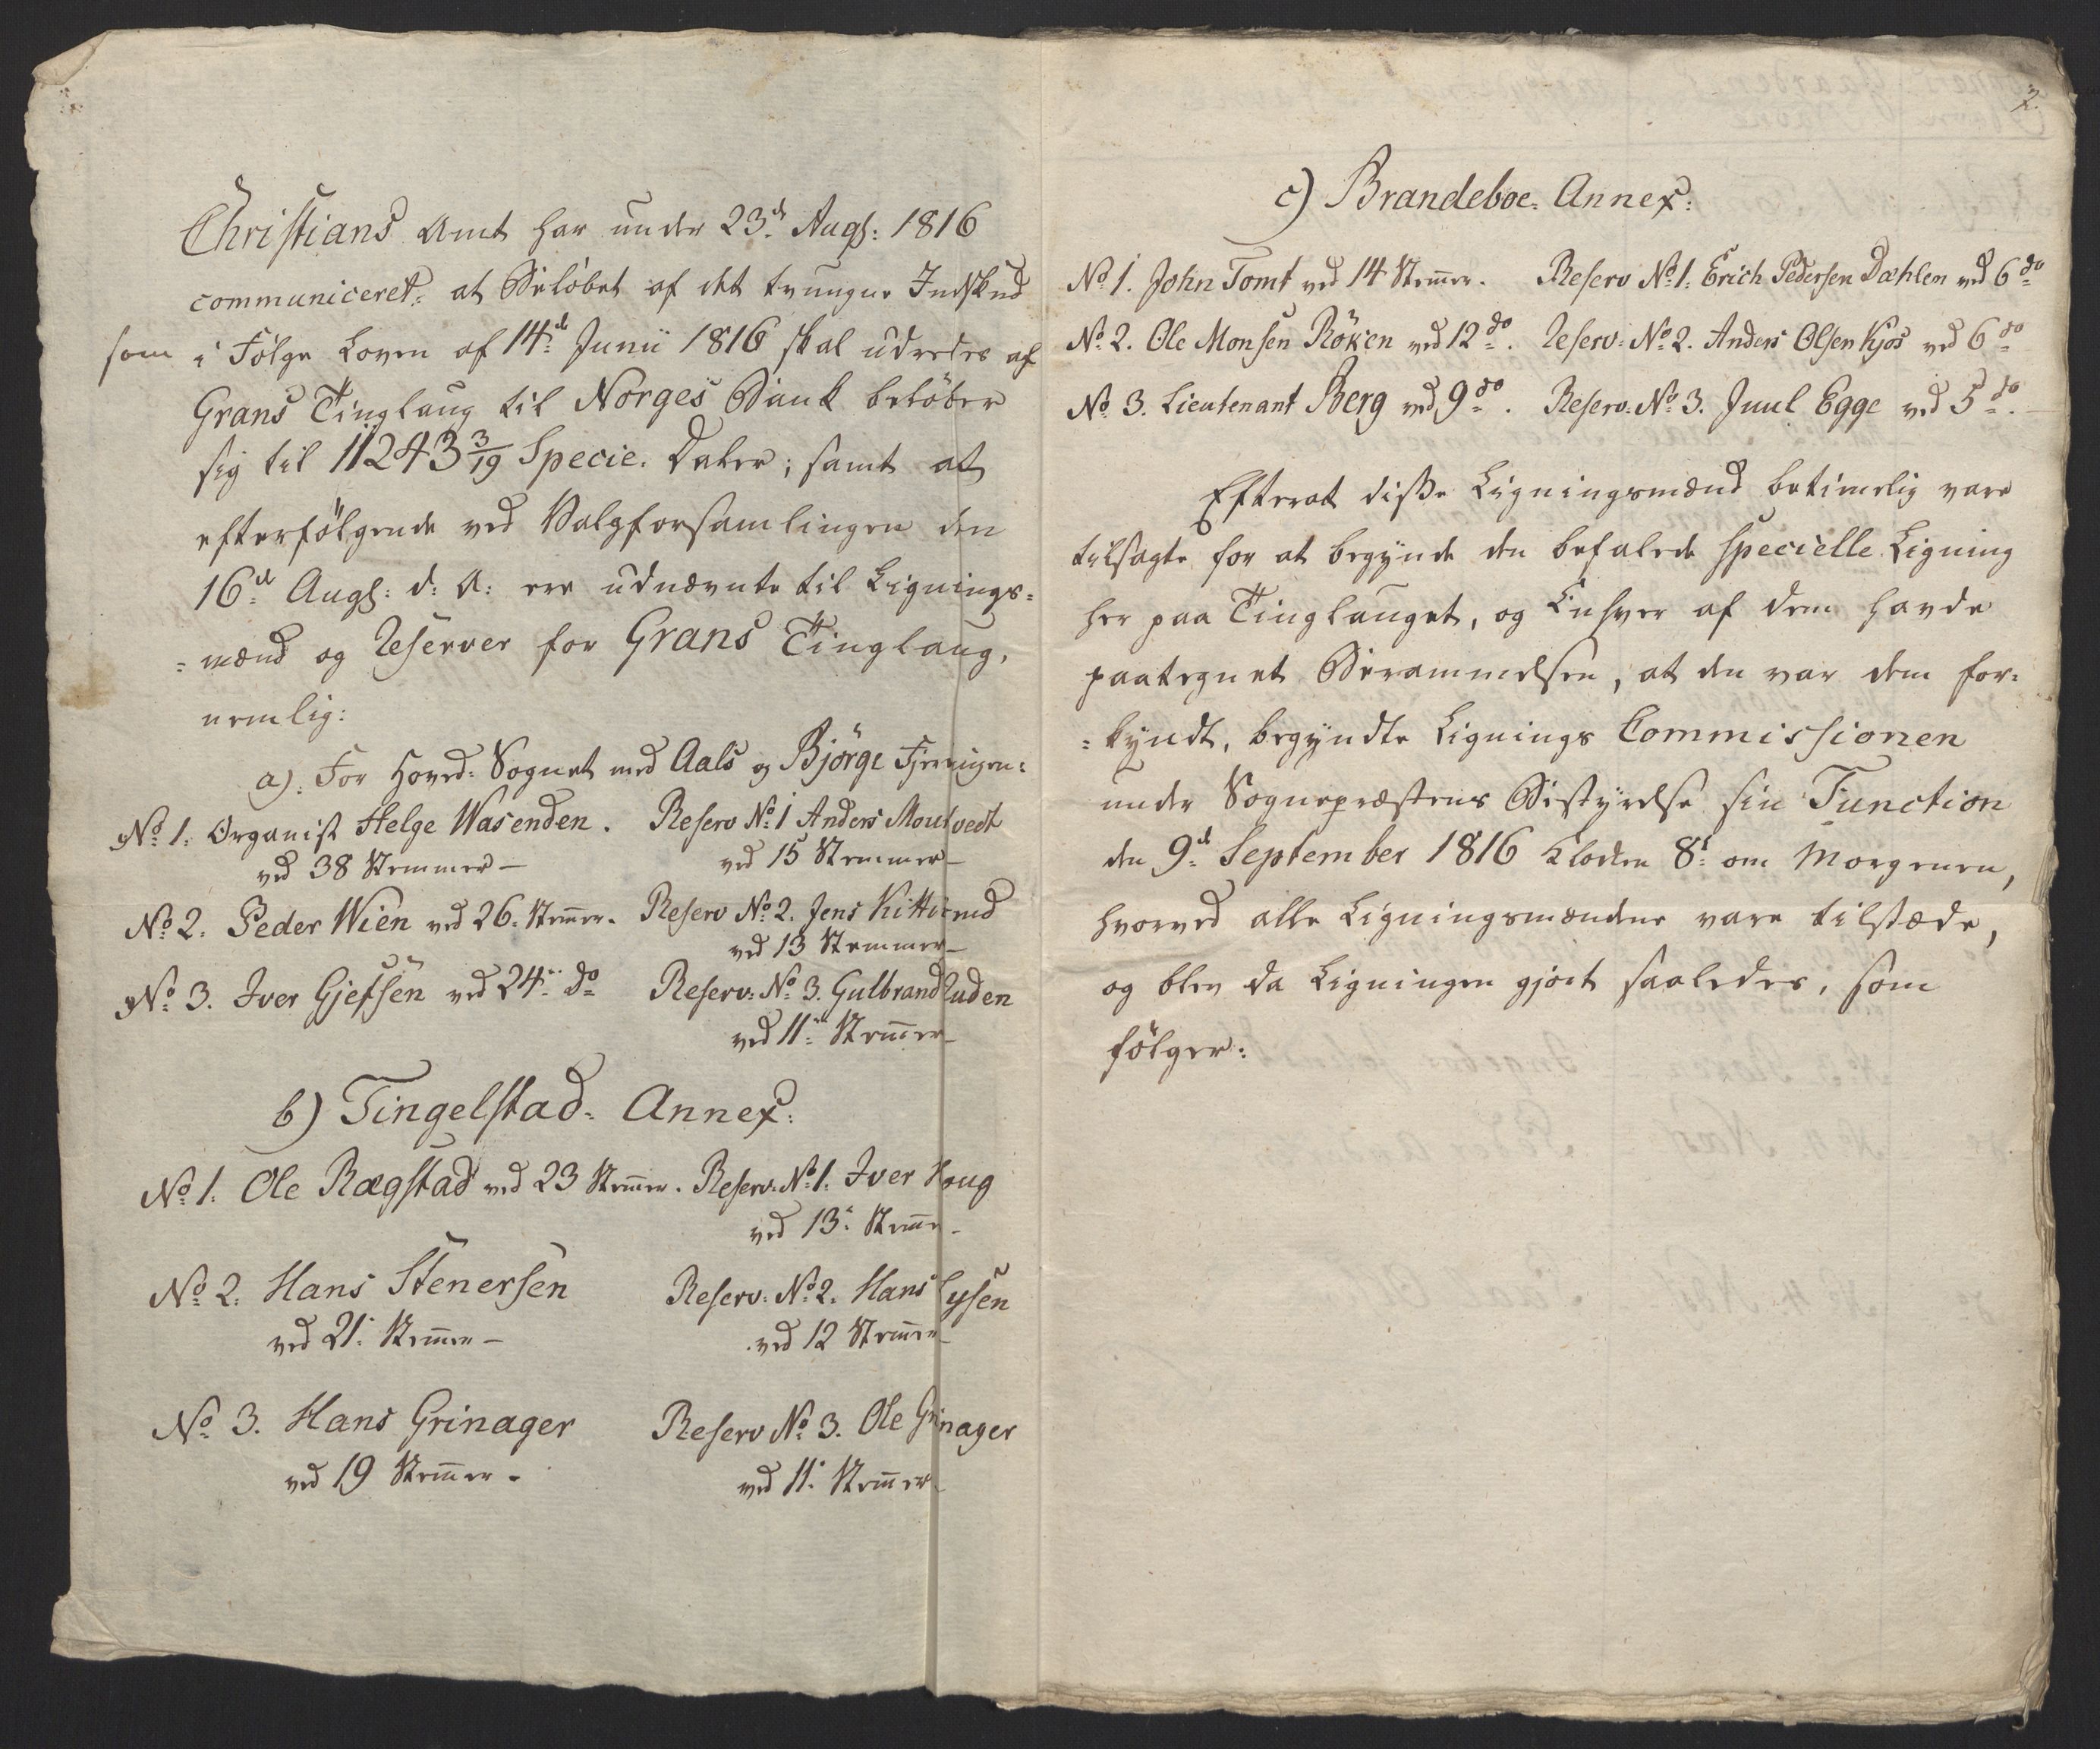 Christians Amt har under 23de Augs: 1816
communiceret, at Beløbet af det tvungne Indskud
som i Følge Loven af 14de Junii 1816 skal udredes af
Grans Tinglaug til Norges Bank beløber
sig til 11243 3/19 Specie. Daler; samt at
efterfølgende ved Valgforsamlingen den
16de Augs: d: A: ere udnævnte til Lignings-
-mænd og Reserver for Grans Tinglaug,
nemlig:
a). For Hoved-Sognet med Aals og Bjørge Fjerdingen:
No 1. Organist Helge Wasenden. Reserv No 1 Anders Moutvedt
ved 38 Stemmer — ved 15 Stemmer —
No 2. Peder Wien ved 26. Stemer. Reserv No 2. Jens Kitterud
ved 13 Stemmer —
No 3. Iver Gjefsen ved 24 do Reserv: No 3. Gulbrand Luden
ved 11 Stemer —
b) Tingelstad- Annex:
No 1. Ole Rægstad ved 23 Stemer. Reserv: No 1. Iver Houg
ved 13 Steme —
No 2. Hans Stenersen Reserv: No 2. Hans Lysen
ved 21 Stemer — ved 12 Stemer —
No 3. Hans Grinager Reserv No 3. Ole Grinager
ved 19 Stemer. ved 11 Stemer —
2.
c) Brandeboe- Annex:
No 1. John Tomt ved 14 Stemer. Reserv No 1. Erich Pedersen Dæhlen ved 6 do
No 2. Ole Monsen Røken ved 12 do. Reserv: No 2. Anders Olsen Kjos ved 6 do
No 3. Lieutenant Berg ved 9 do. Reserv: No 3. Juul Egge ved 5 do.
Efterat disse Ligningsmænd betimelig vare
tilsagte for at begynde den befalede specielle Ligning
her paa Tinglauget, og Enhver af dem havde
paategnet Berammelsen, at den var dem for-
-kyndt, begyndte Lignings Commissionen
under Sognepræstens Bestyrelse sin Function
den 9de September 1816 Klokken 8t om Morgenen,
hvorved alle Ligningsmændene vare tilstæde,
og blev da Ligningen gjort saaledes, som
følger: